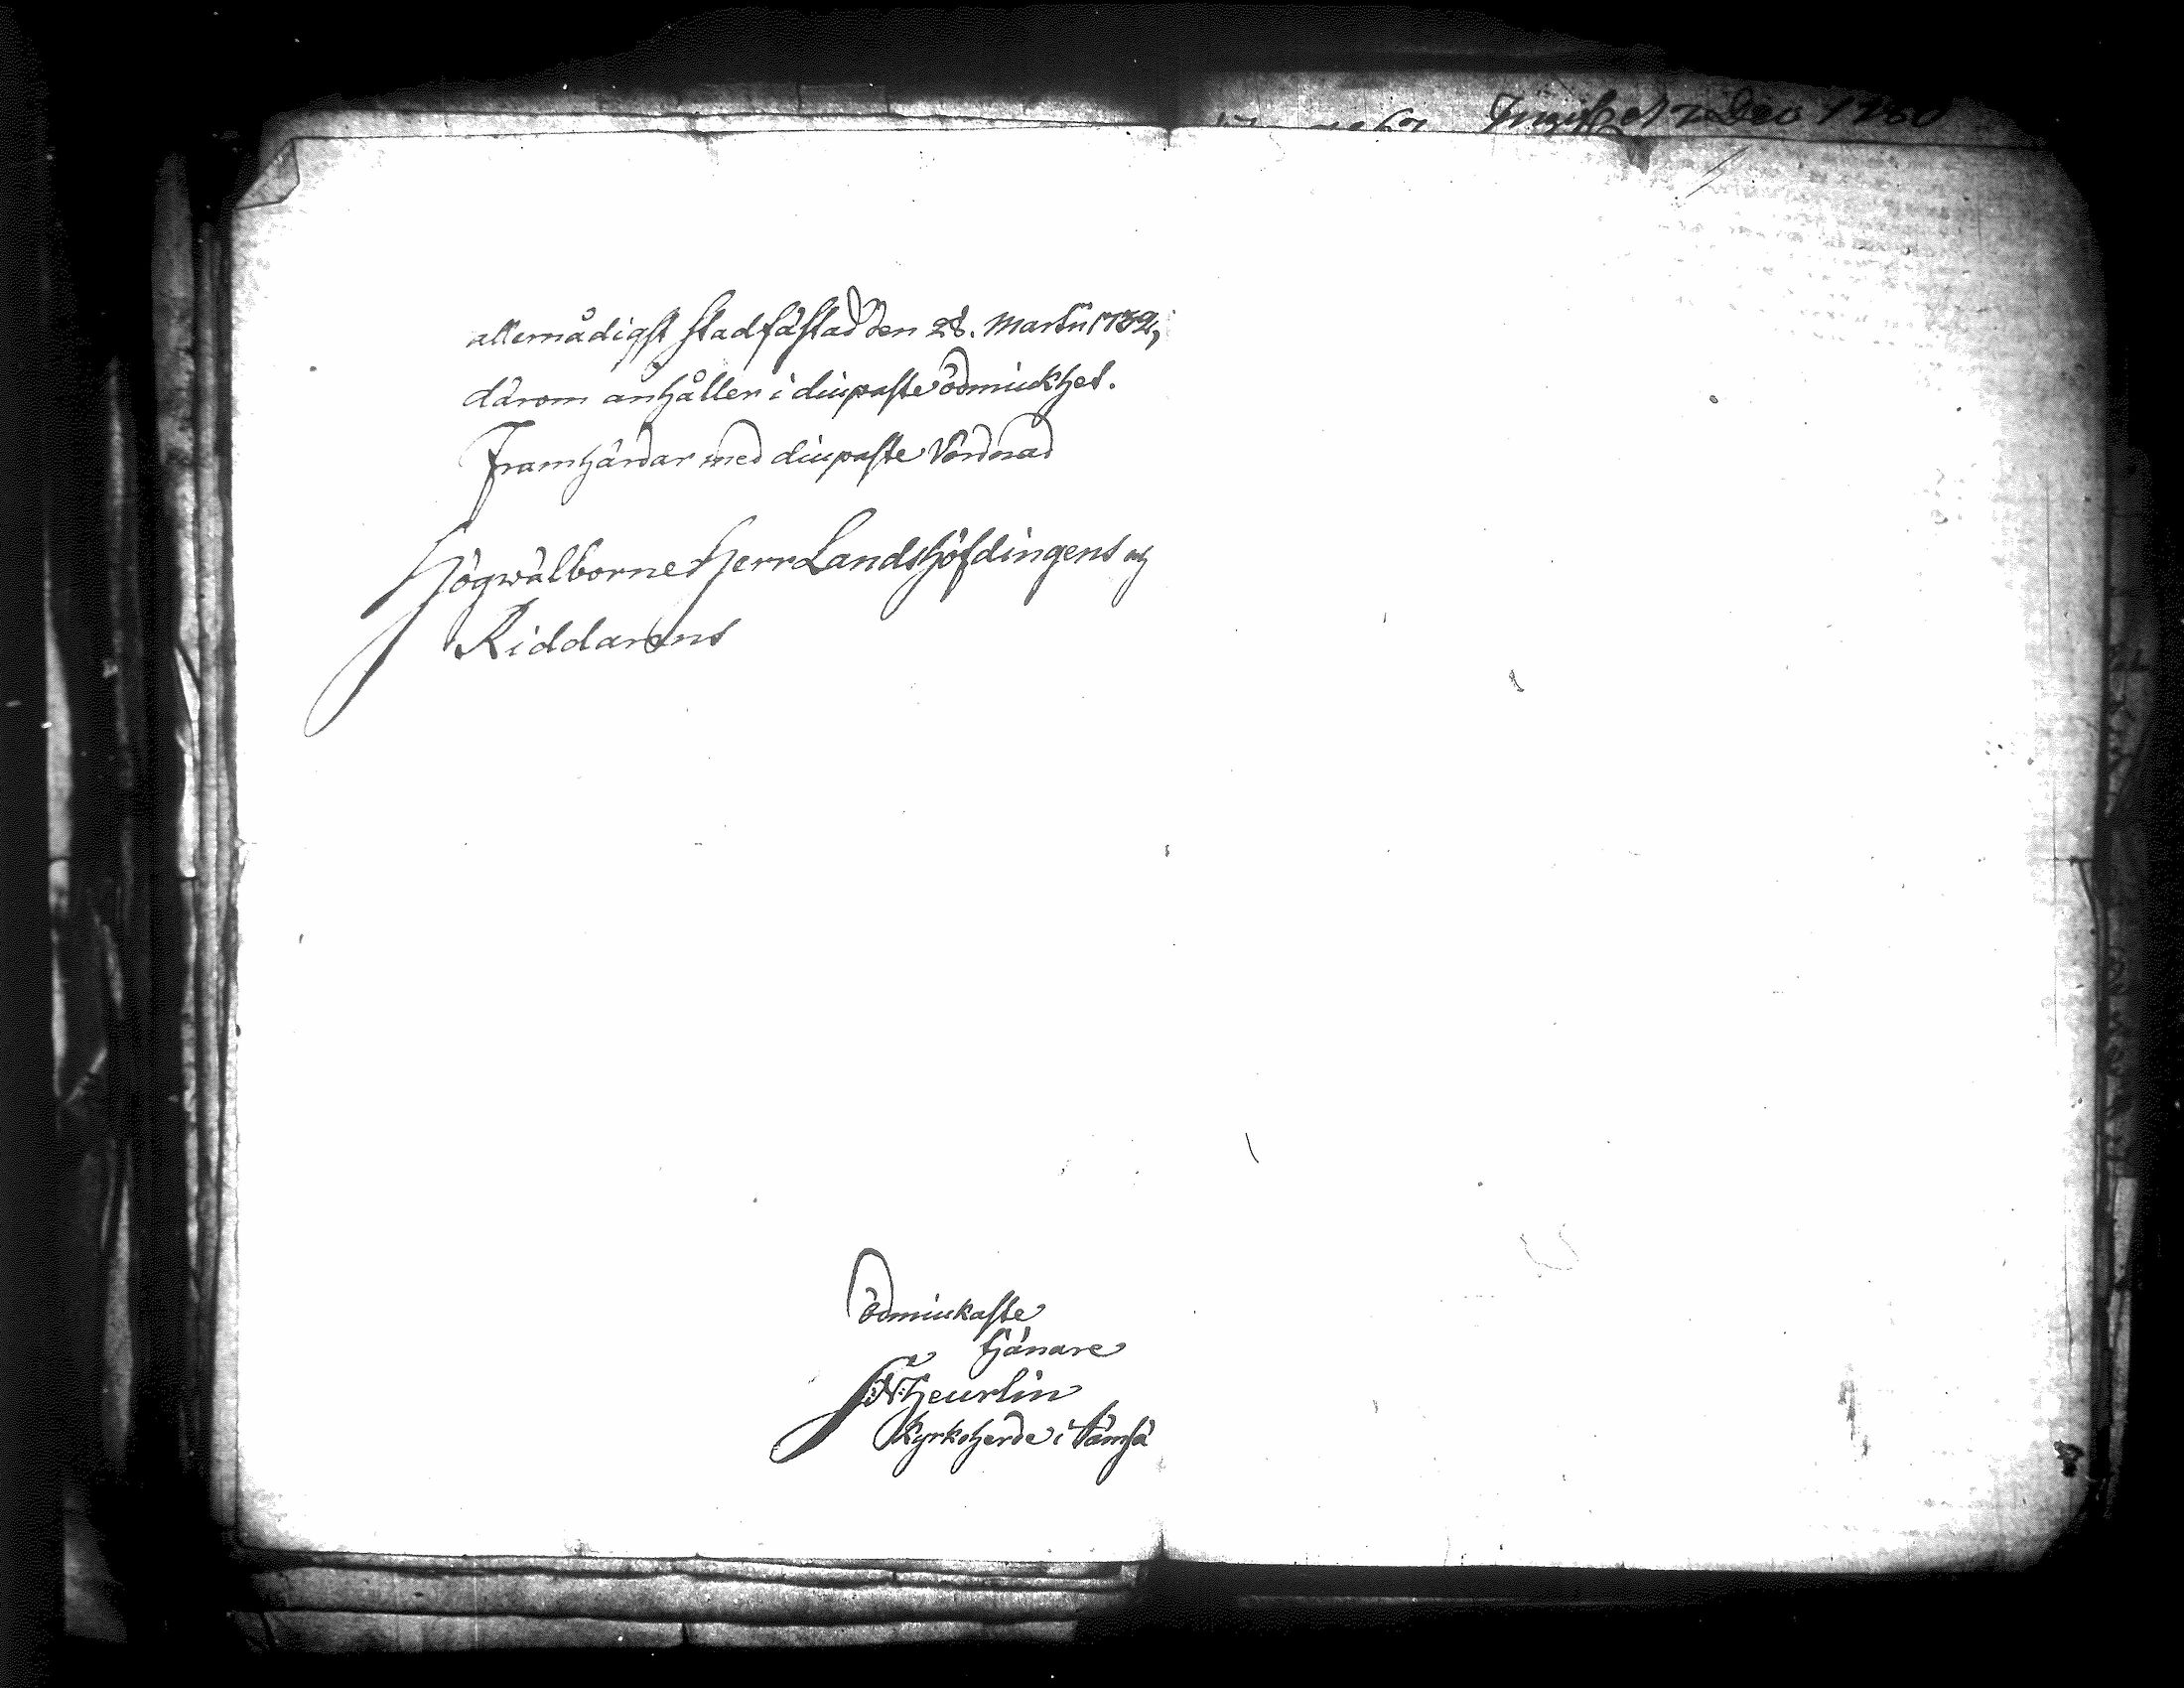 allernådigst stadfästad den 28. Martii 1739,
därom anhåller i diupaste ödmiukhet.
Framhärdar med diupaste Vördnad
Högwälborne Herr Landshöfdingens och
Riddarens
ödmiukaste
tjänare
N: Heurlin
Kyrkoherde i Jämsä
Dec 1760